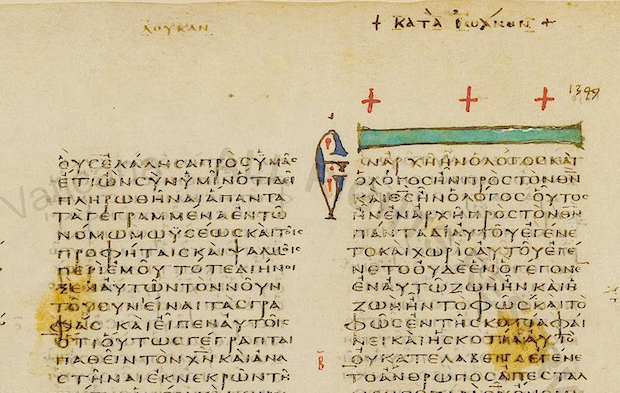 ΛΟΥΚΑΝ
+ ΚΑΤΑ ΙΩΑΝΝΗΝ +
1349
ΟΥϹΕΛΑΛΗϹΑΠΡΟϹΥΜΑϹ
ΕΤΙΩΝϹΥΝΥΜΙΝΟΤΙΔΕΙ
ΠΛΗΡΩΘΗΝΑΙΑΠΑΝΤΑ
ΤΑΓΕΓΡΑΜΜΕΝΑΕΝΤΩ
ΝΟΜΩΜΩΥϹΕΩϹΚΑΙΤΟΙϹ
ΠΡΟΦΗΤΑΙϹΚΑΙΨΑΛΜΟΙϹ
ΠΕΡΙΕΜΟΥΤΟΤΕΔΙΗΝΟΙ
ΞΕΝΑΥΤΩΝΤΟΝΝΟΥΝ
ΤΟΥϹΥΝΕΙΝΑΙΤΑϹΓΡΑ
ΦΑϹ ΚΑΙΕΙΠΕΝΑΥΤΟΙϹ
ΟΤΙΟΥΤΩϹΓΕΓΡΑΠΤΑΙ
ΠΑΘΕΙΝΤΟΝΧΝΚΑΙΑΝΑ
ϹΤΗΝΑΙΕΚΝΕΚΡΩΝΤΗ
ΕΝΑΡΧΗΗΝΟΛΟΓΟϹΚΑΙ
ΟΛΟΓΟϹΗΝΠΡΟϹΤΟΝΘΝ
ΚΑΙΘϹΗΝΟΛΟΓΟϹΟΥΤΟϹ
ΗΝΕΝΑΡΧΗΠΡΟϹΤΟΝΘΝ
ΠΑΝΤΑΔΙΑΥΤΟΥΕΓΕΝΕ
ΤΟΚΑΙΧΩΡΙϹΑΥΤΟΥΕΓΕ
ΝΕΤΟΟΥΔΕΕΝΟΓΕΓΟΝΕ
ΕΝΑΥΤΩΖΩΗΗΝΚΑΙΗ
ΖΩΗΗΝΤΟΦΩϹΚΑΙΤΟ
ΦΩϹΕΝΤΗϹΚΟΤΙΑΦΑΙ
ΝΕΙΚΑΙΗϹΚΟΤΙΑΑΥΤΟ
ΟΥΚΑΤΕΛΑΒΕΝΕΓΕΝΕ
ΤΟΑΝΘΡΩΠΟϹΑΠΕϹΤΑΛ
Β